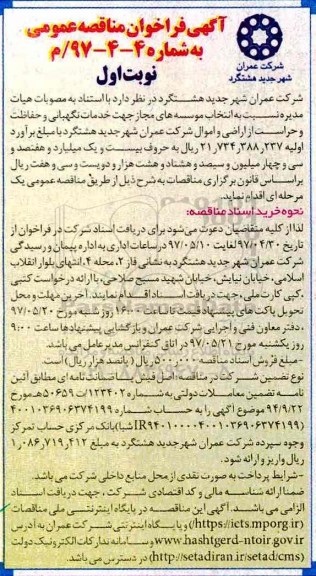 آگهی فراخوان مناقصه عمومی
به شماره ۴-۴-۹۷/م
نوبت اول
شرکت عمران
شهر جدید هشتگرد
شرکت عمران شهر جدید هشتگرد در نظر دارد با استناد به مصوبات هیات
مدیره نسبت به انتخاب موسسه های مجاز جهت خدمات نگهبانی و حفاظت
و حراست از اراضی و اموال شرکت عمران شهر جدید هشتگرد با مبلغ برآورد
اولیه ۲۱,۷۳۴,۳۸۸,۲۳۷ ریال به حروف بیست و یک میلیارد و هفتصد و
سی و چهار میلیون و سیصد و هشتاد و هشت هزار و دویست و سی و هفت ریال
براساس قانون برگزاری مناقصات به شرح ذیل از طریق مناقصه عمومی یک
مرحله ای اقدام نماید.
نحوه خرید اسناد مناقصه:
لذا از کلیه متقاضیان دعوت می شود برای دریافت اسناد شرکت در فراخوان از
تاریخ ۹۷/۰۴/۳۰ لغایت ۹۷/۰۵/۱۰ در ساعات اداری به اداره پیمان و رسیدگی
شرکت عمران شهر جدید هشتگرد به نشانی فاز ۲، محله ۴، انتهای بلوار انقلاب
اسلامی، خیابان نیایش، خیابان شهید مسیح صلاحی، با ارائه درخواست کتبی
،کپی کارت ملی، جهت دریافت اسناد اقدام نمایند. آخرین مهلت و محل
تحویل پاکت های پیشنهاد قیمت تا ساعت ۱۶:۰۰ روز شنبه مورخ ۹۷/۰۵/۲۰
، دفتر معاون فنی و اجرایی شرکت عمران و بازگشایی پیشنهادها ساعت ۹:۰۰
روز یکشنبه مورخ ۹۷/۰۵/۲۱ در اتاق کنفرانس مدیرعامل می باشد.
-مبلغ فروش اسناد مناقصه ۵۰۰,۰۰۰ ریال (پانصد هزار ریال) است.
نوع تضمین شرکت در مناقصه: اصل فیش یا ضمانت نامه ای مطابق آئین
نامه تضمین معاملات دولتی به شماره ۱۲۳۴۰۲/ت ۵۰۶۵۹ هـ مورخ
۹۴/۹/۲۲ موضوع آگهی را به حساب شماره ۴۰۰۱۰۳۶۹۰۶۳۷۴۱۹۹
(شبا بانک مرکزی حساب تمرکز
وجوه سپرده شرکت عمران شهر جدید هشتگرد به مبلغ ۱,۰۸۶,۷۱۹,۴۱۲
ریال واریز و ارائه شود.
-شرایط پرداخت به صورت نقدی از محل منابع داخلی شرکت می باشد.
ضمنا ارائه شناسه ملی و کد اقتصادی شرکت، جهت دریافت اسناد
الزامی می باشد. آگهی این مناقصه در پایگاه اینترنتی ملی مناقصات
(https://icts.mporg.ir) و یا پایگاه اینترنتی شرکت عمران به آدرس
www.hashtgerd-ntoir.gov.ir و سامانه تدارکات الکترونیک دولت
(http://setadiran.ir/setad/cms) در دسترس می باشد.